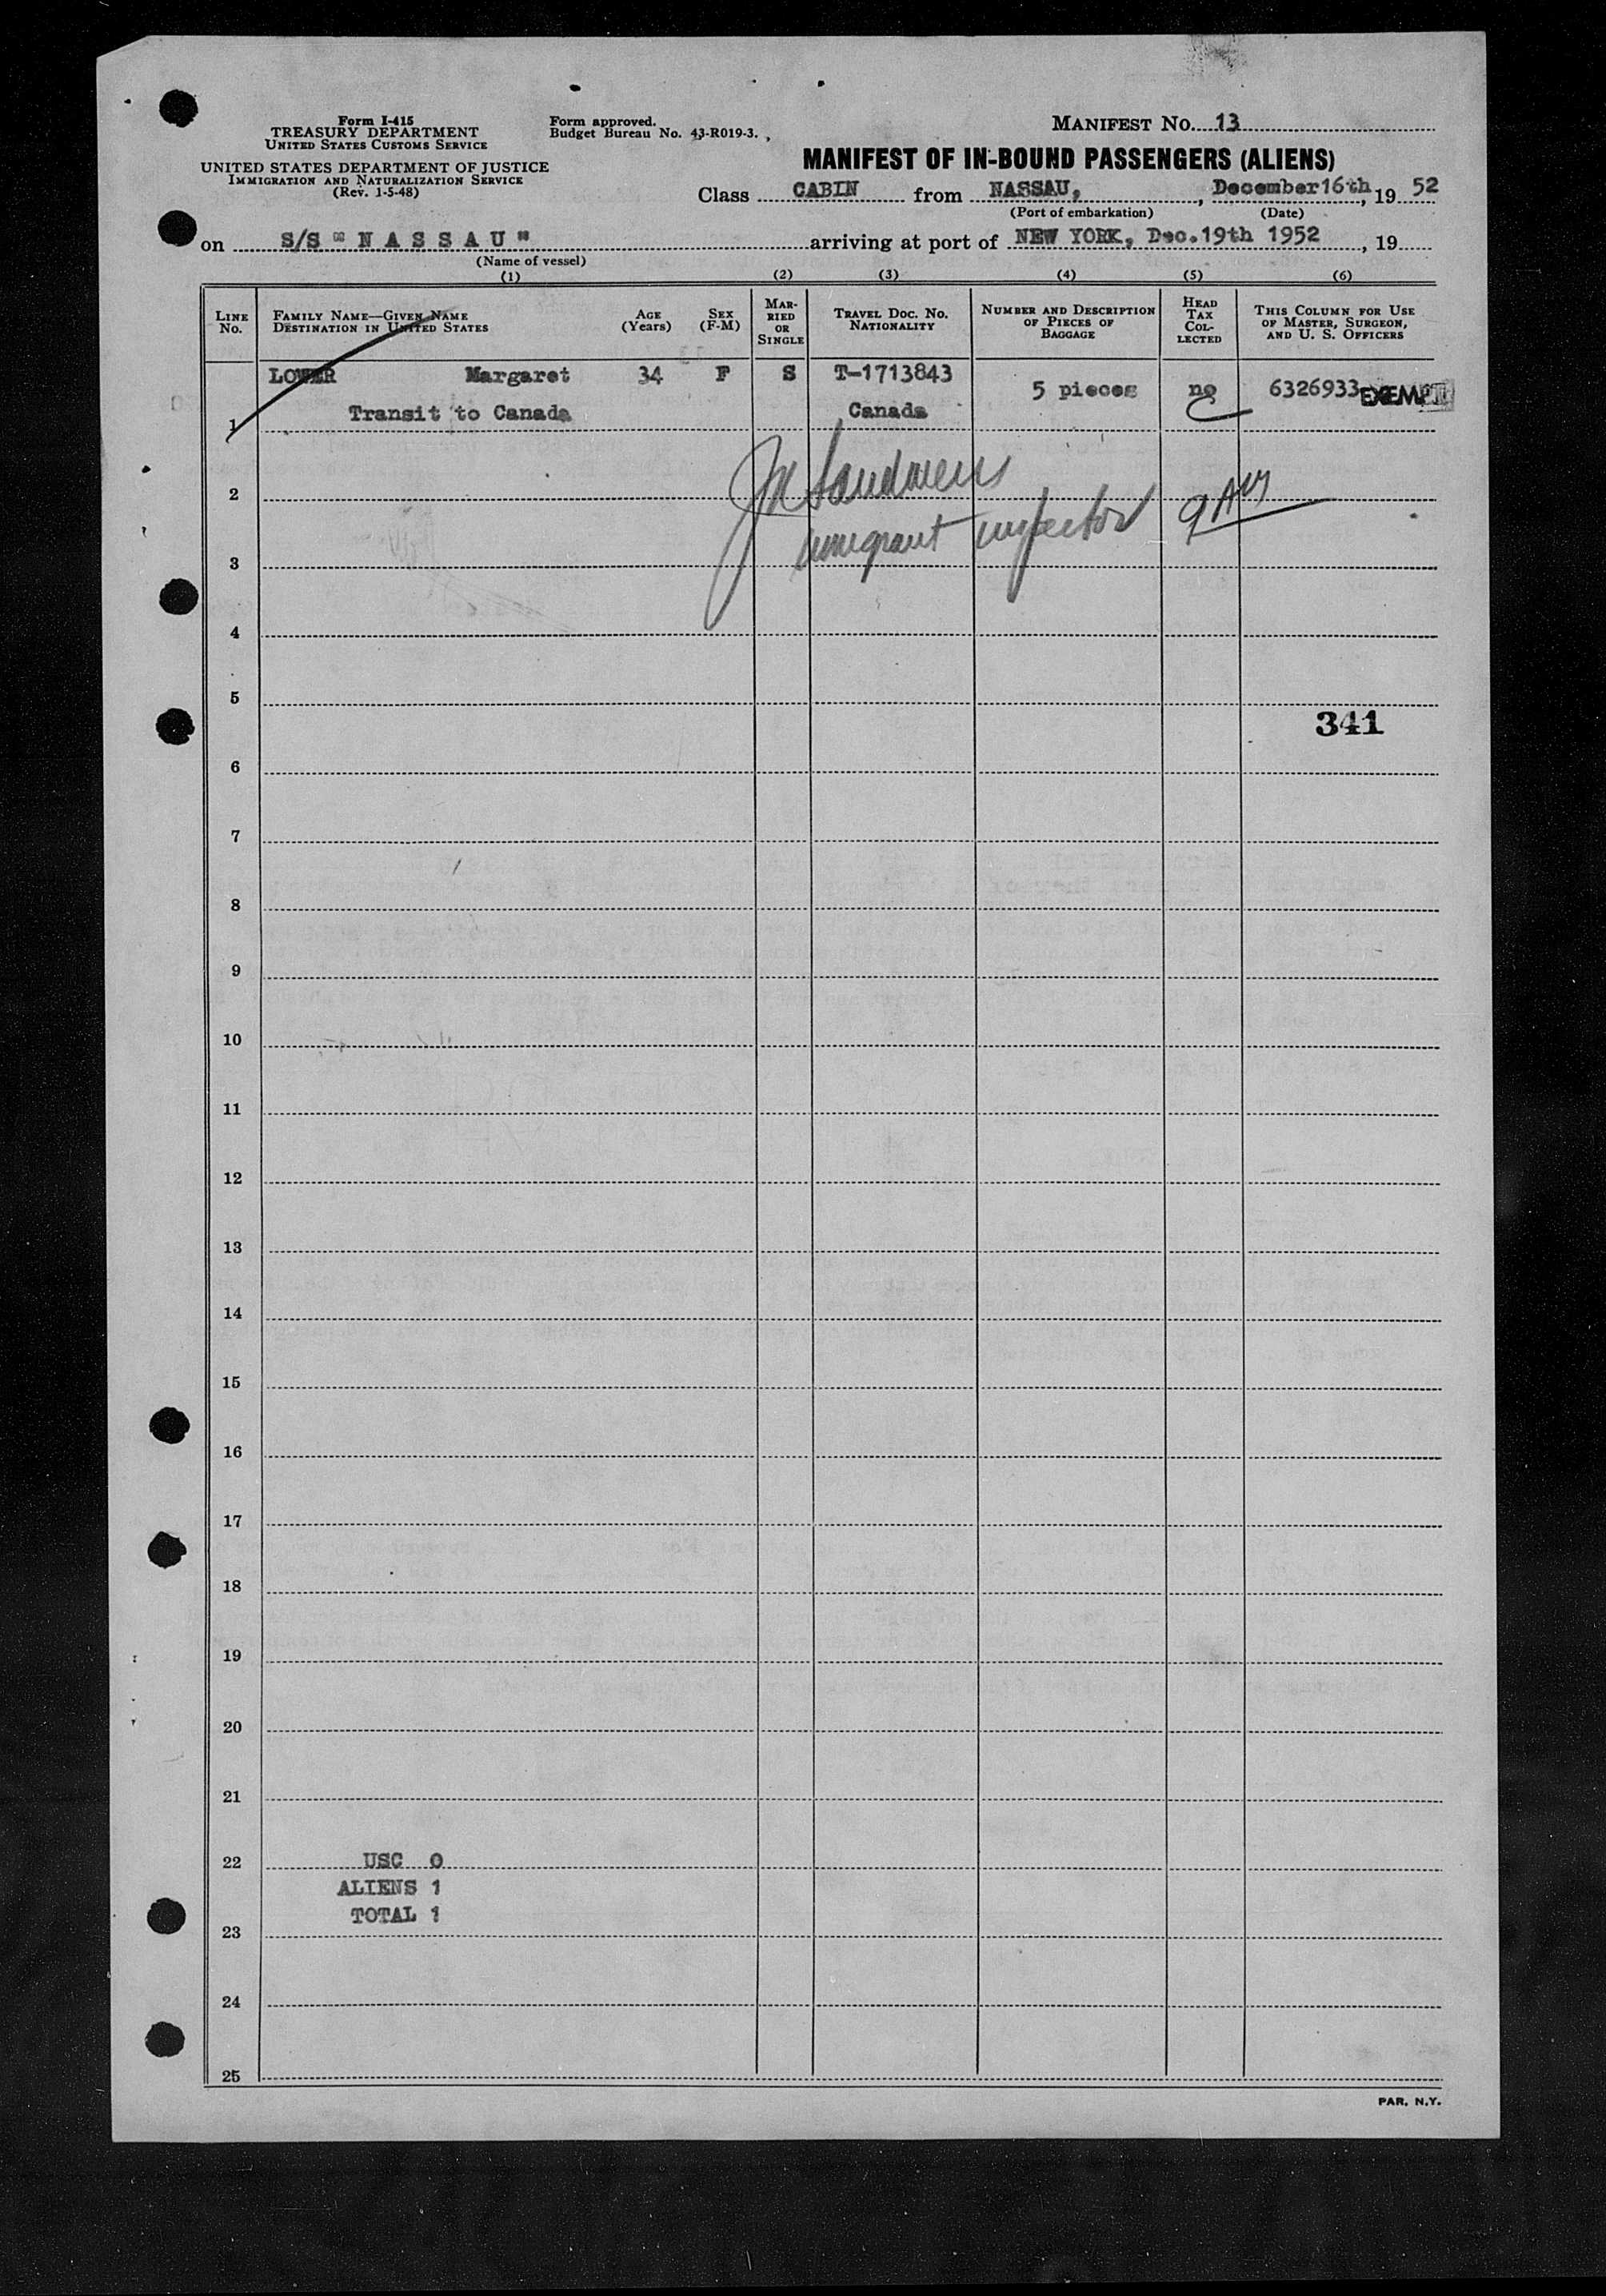 Form I-415
TREASURY DEPARTMENT
UNITED STATES CUSTOMS SERVICE
UNITED STATES DEPARTMENT OF JUSTICE
IMMIGRATION AND NATURALIZATION SERVICE
(Rev. 1-5-48)
Form approved.
Budget Bureau No. 43-R019-3.
MANIFEST NO. 13
MANIFEST OF IN-BOUND PASSENGERS (ALIENS)
Class CABIN from NASSAU, , December 16th, 19 52
(Port of embarkation) (Date)
on S/S "N A S S A U" arriving at port of NEW YORK, Dec. 19th 1952 , 19
(Name of vessel)
(1) (2) (3) (4) (5) (6)
LINE No. FAMILY NAME—GIVEN NAME DESTINATION IN UNITED STATES AGE (Years) SEX (F-M) MARRIED OR SINGLE TRAVEL DOC. NO. NATIONALITY NUMBER AND DESCRIPTION OF PIECES OF BAGGAGE HEAD TAX COLLECTED THIS COLUMN FOR USE OF MASTER, SURGEON, AND U. S. OFFICERS
LOWER Margaret 34 F S T-1713843 5 pieces no 6326933 EXEMPT
1 Transit to Canada Canada
2
immigrant inspector
3
4
5
341
6
7
8
9
10
11
12
13
14
15
16
17
18
19
20
21
22 USC 0
ALIENS 1
TOTAL 1
23
24
25
PAR. N.Y.